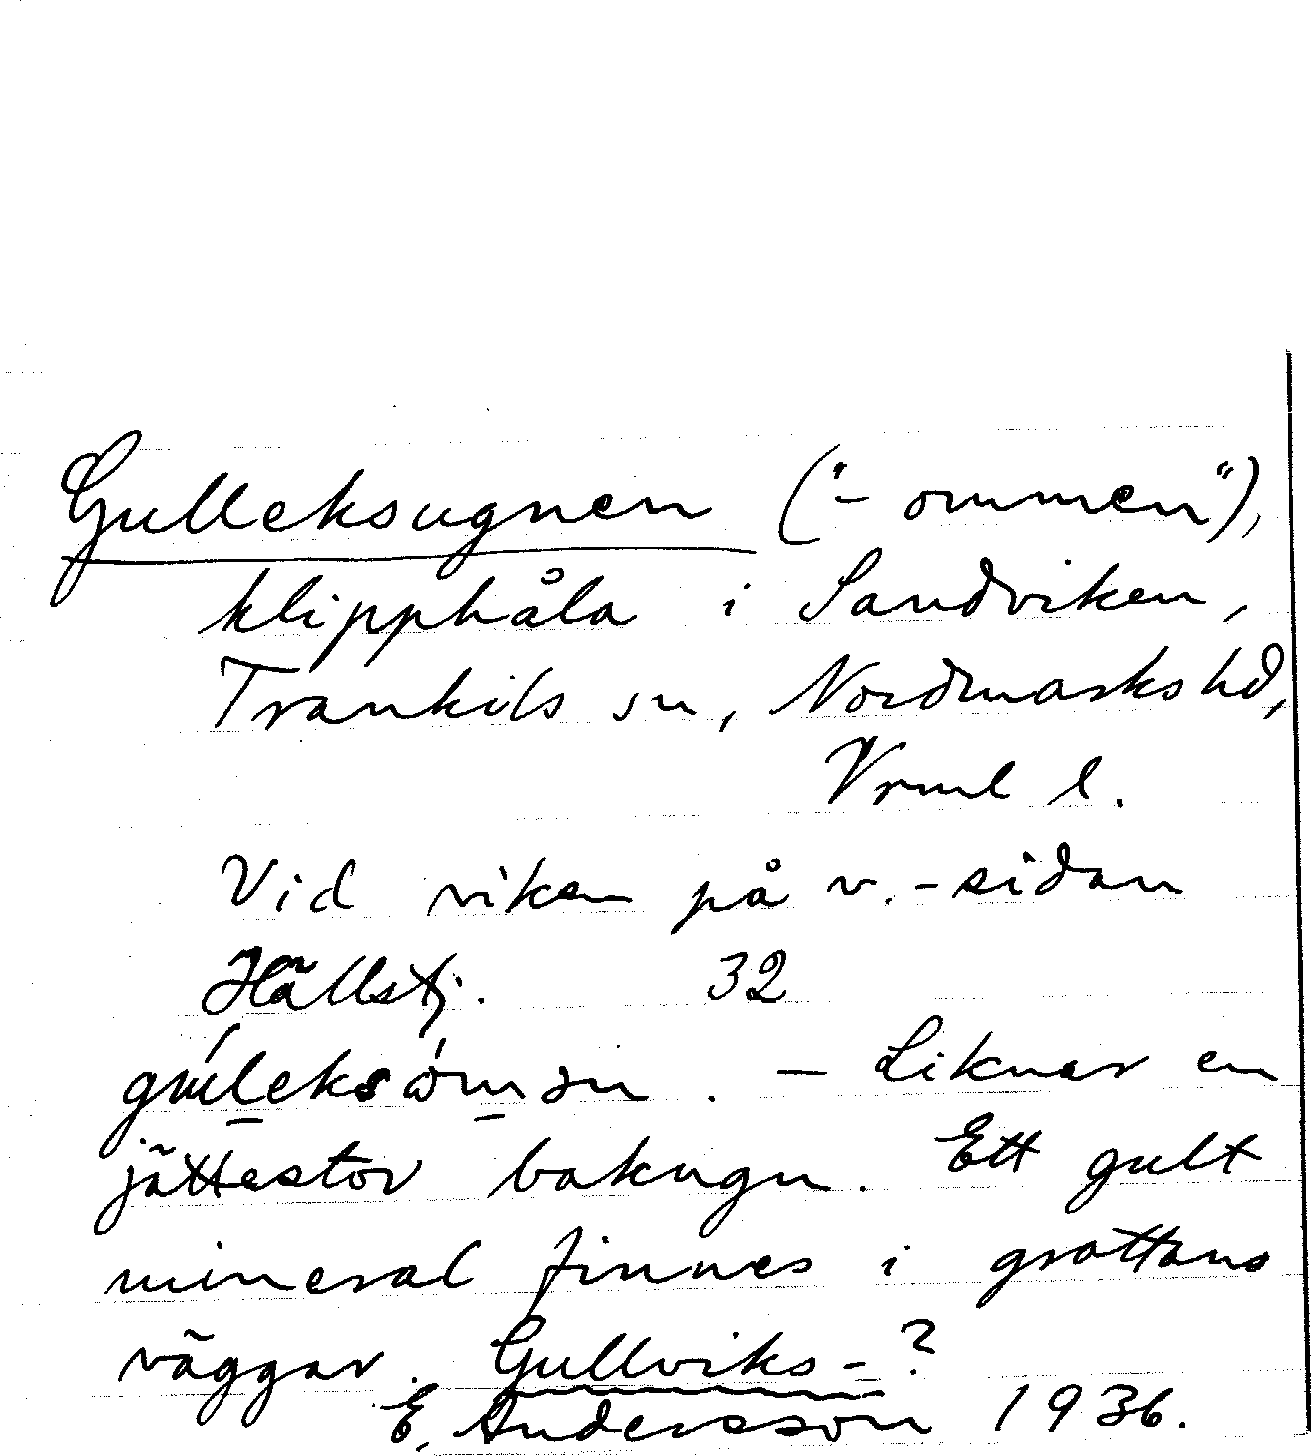 Gulleksugnen ("-ommen"),
klipphåla i Sandviken,
Trankils sn, Nordmarks hd,
Vrml l.
Vid viken på v.-sidan
Hällstj. 32
jättestor bakugn. Ett gult
mineral finnes i grottans
väggar. Gullviks-?
E. Andersson 1936.